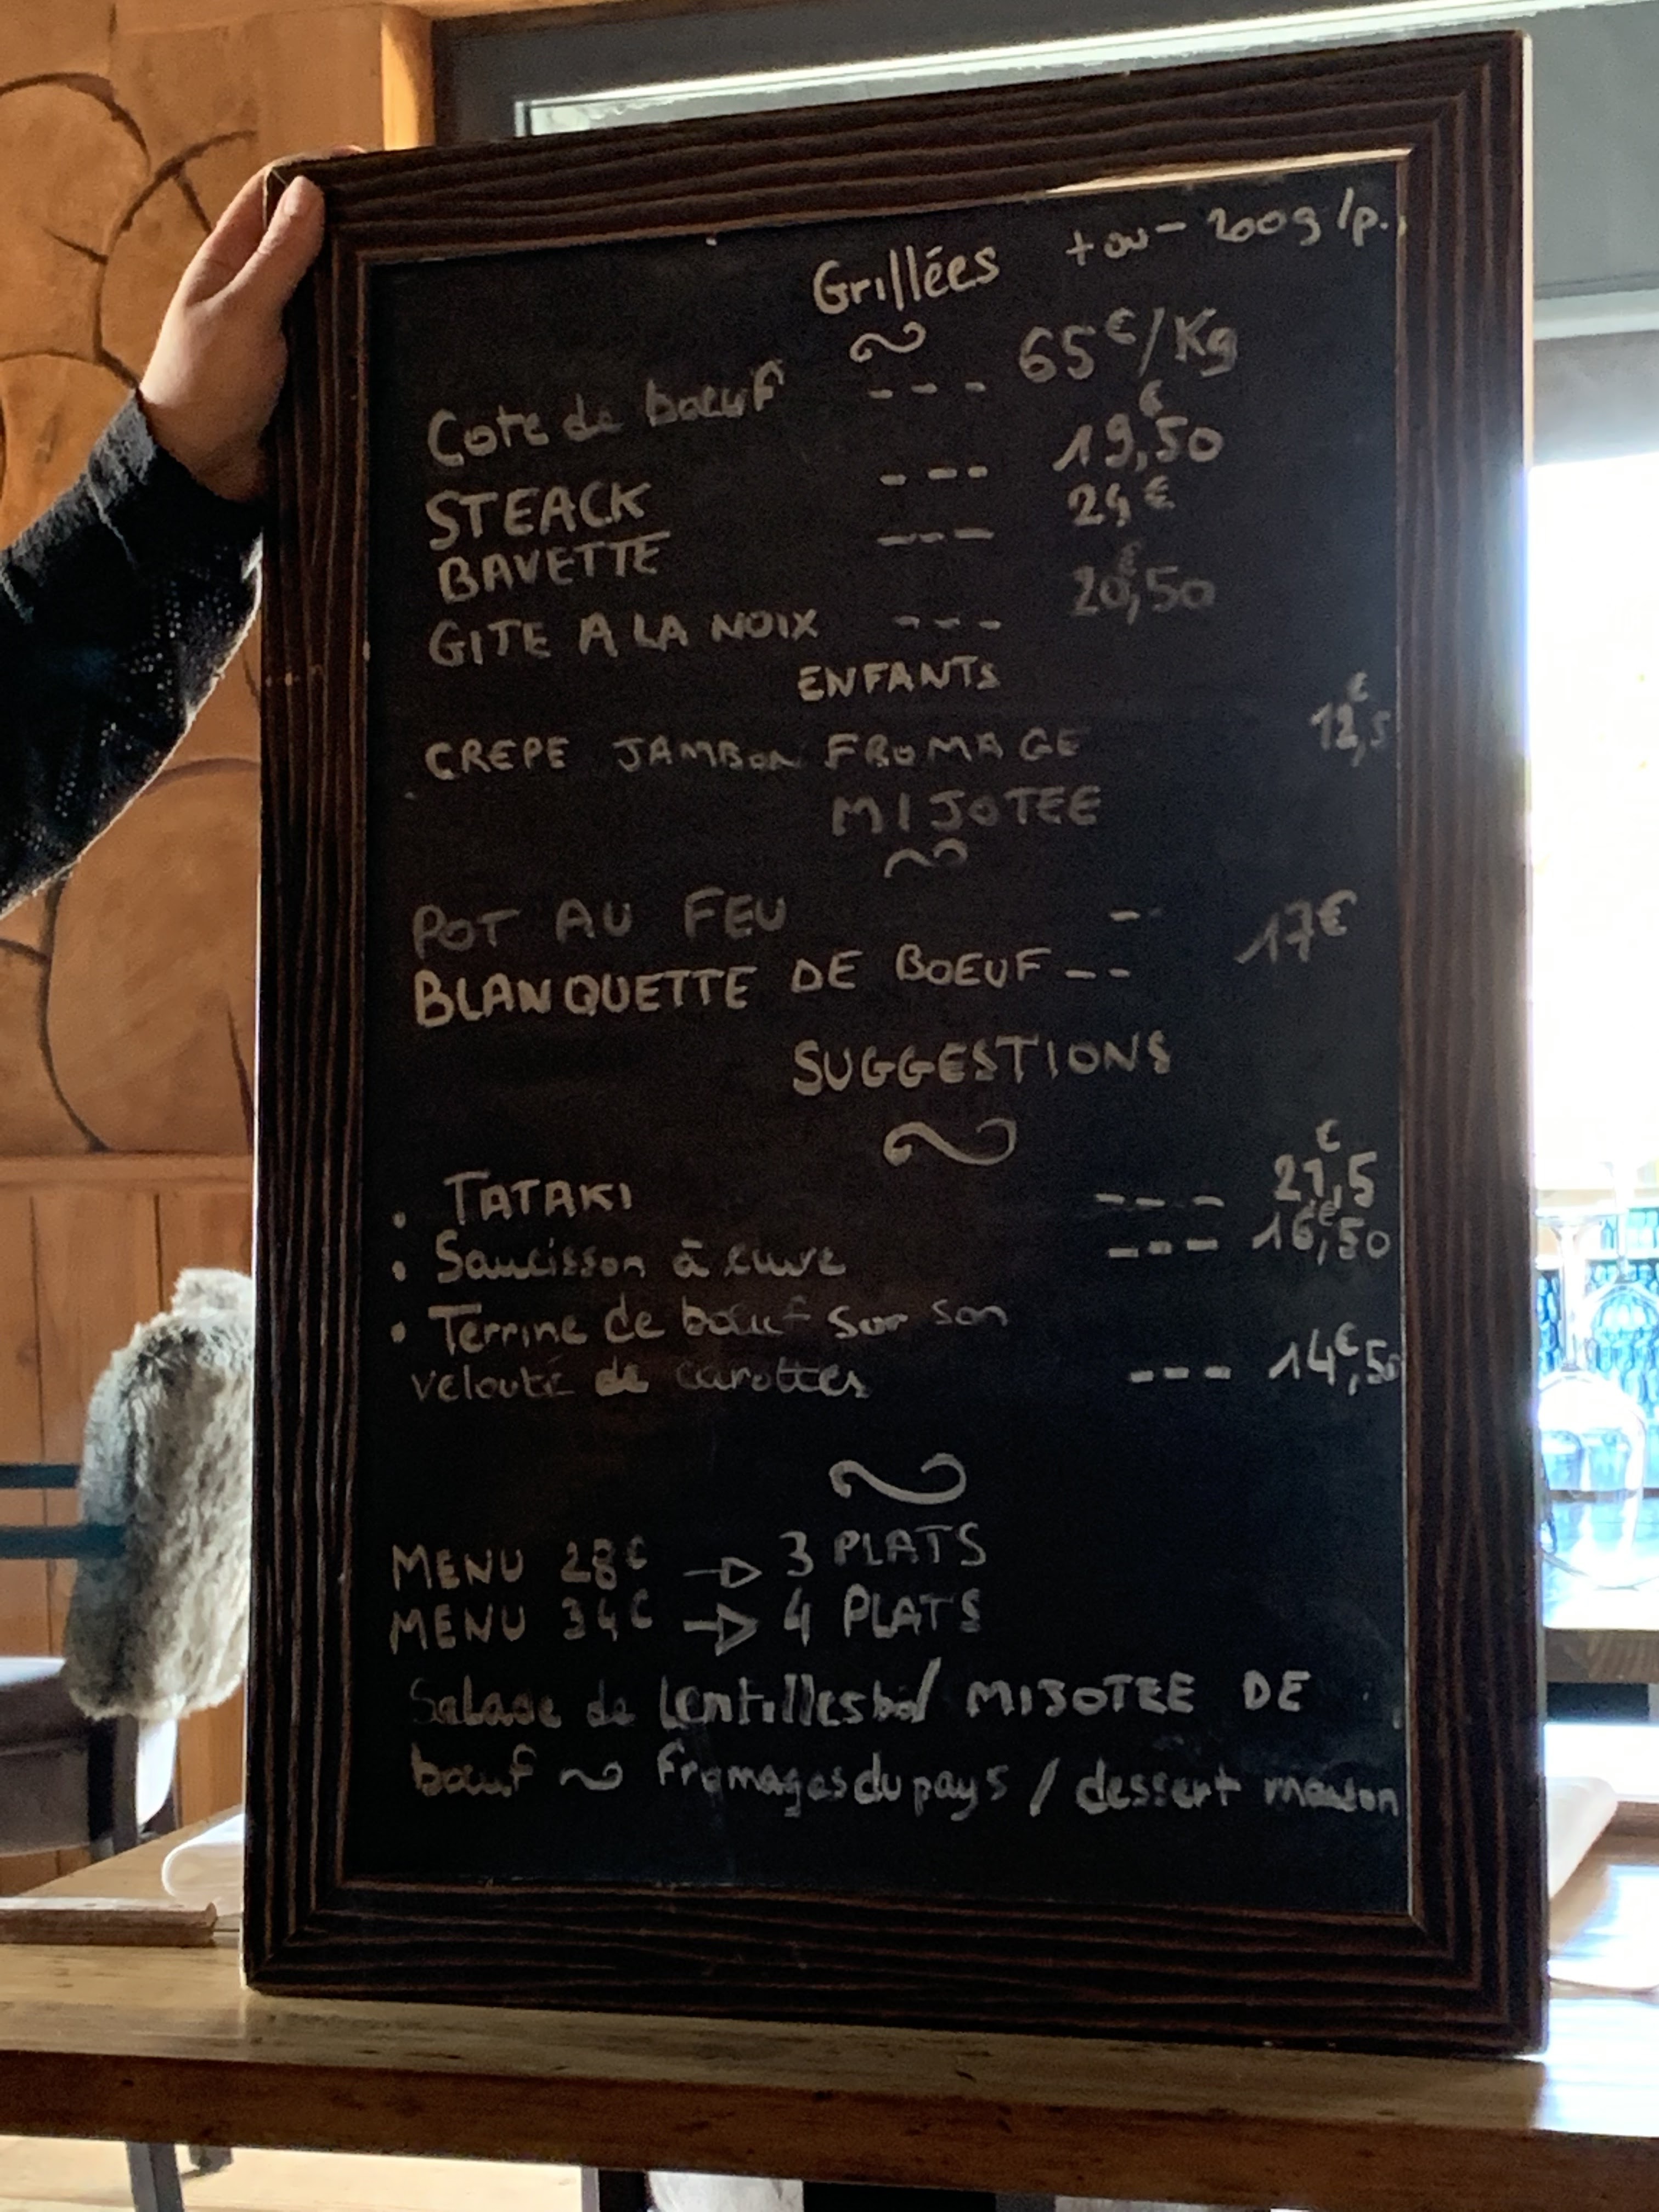 Grillées + ou - 200g/p.
Cote de boeuf --- 65€/Kg
STEACK --- 19,50€
BAVETTE --- 24€
GITE A LA NOIX --- 20,50€
ENFANTS
CREPE JAMBON FROMAGE 12,5€
MIJOTEE
POT AU FEU -
BLANQUETTE DE BOEUF -- 17€
SUGGESTIONS
• TATAKI --- 21,5€
• Saucisson à cuire --- 16€,50
• Terrine de boeuf sur son
velouté de carottes --- 14€,50
MENU 28€ → 3 PLATS
MENU 34€ → 4 PLATS
Salade de lentilles / MIJOTEE DE
boeuf ~ Fromages du pays / dessert maison